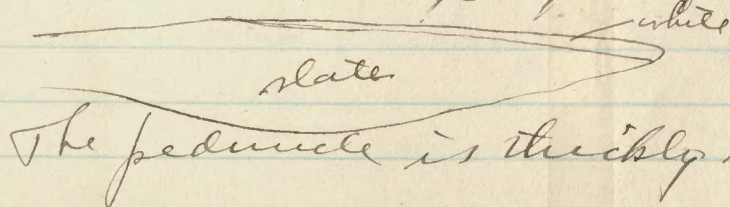 white
slate
The peduncle is thickly